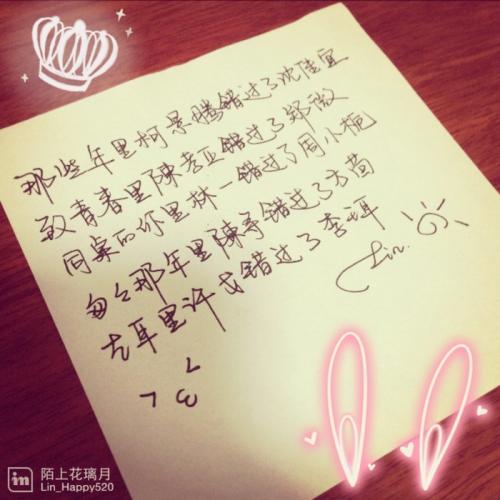 那些年里柯景腾错过了沈佳宜
致青春里陈孝正错过了郑微
同桌的你里林一错过了周小栀
匆匆那年里陈寻错过了方茴
左耳里许弋错过了李珥
Lin.
陌上花璃月
Lin_Happy520